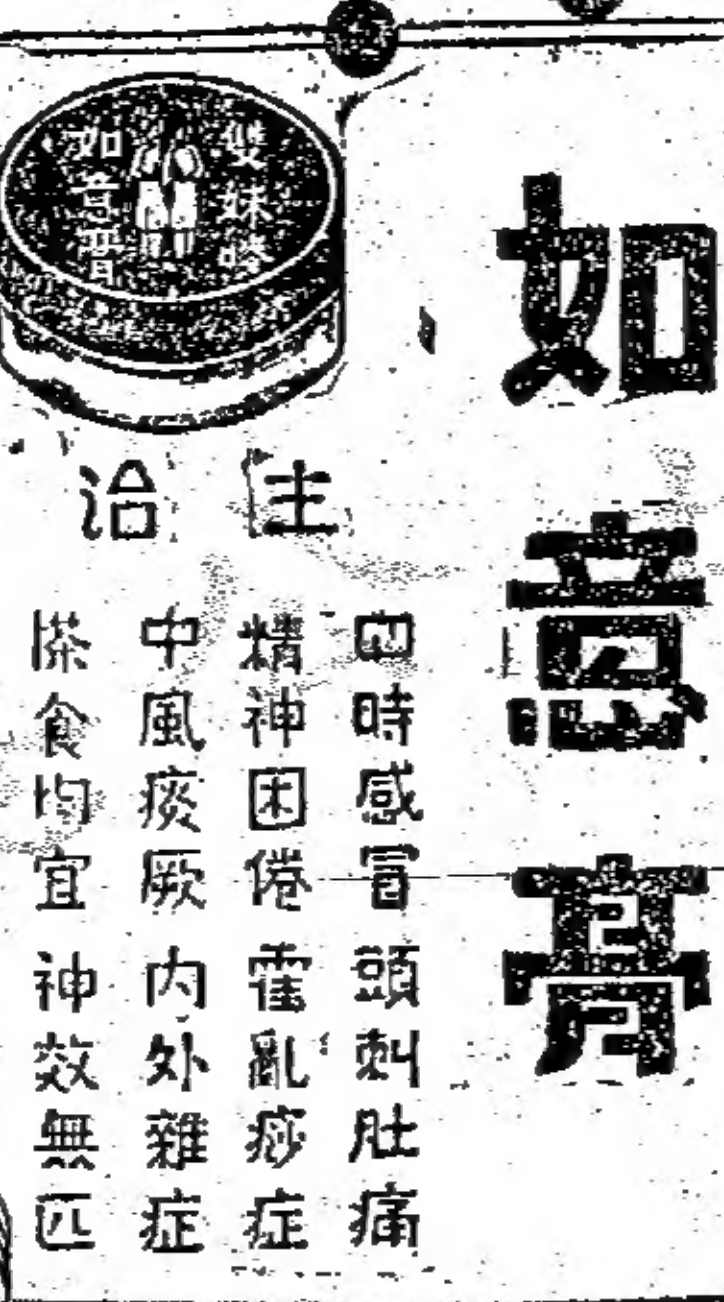 如意膏
雙妹嘜
如意膏
主治
四時感冒頭刺肚痛
精神困倦霍亂痧症
中風痰厥内外雜症
搽食均宜神效無匹